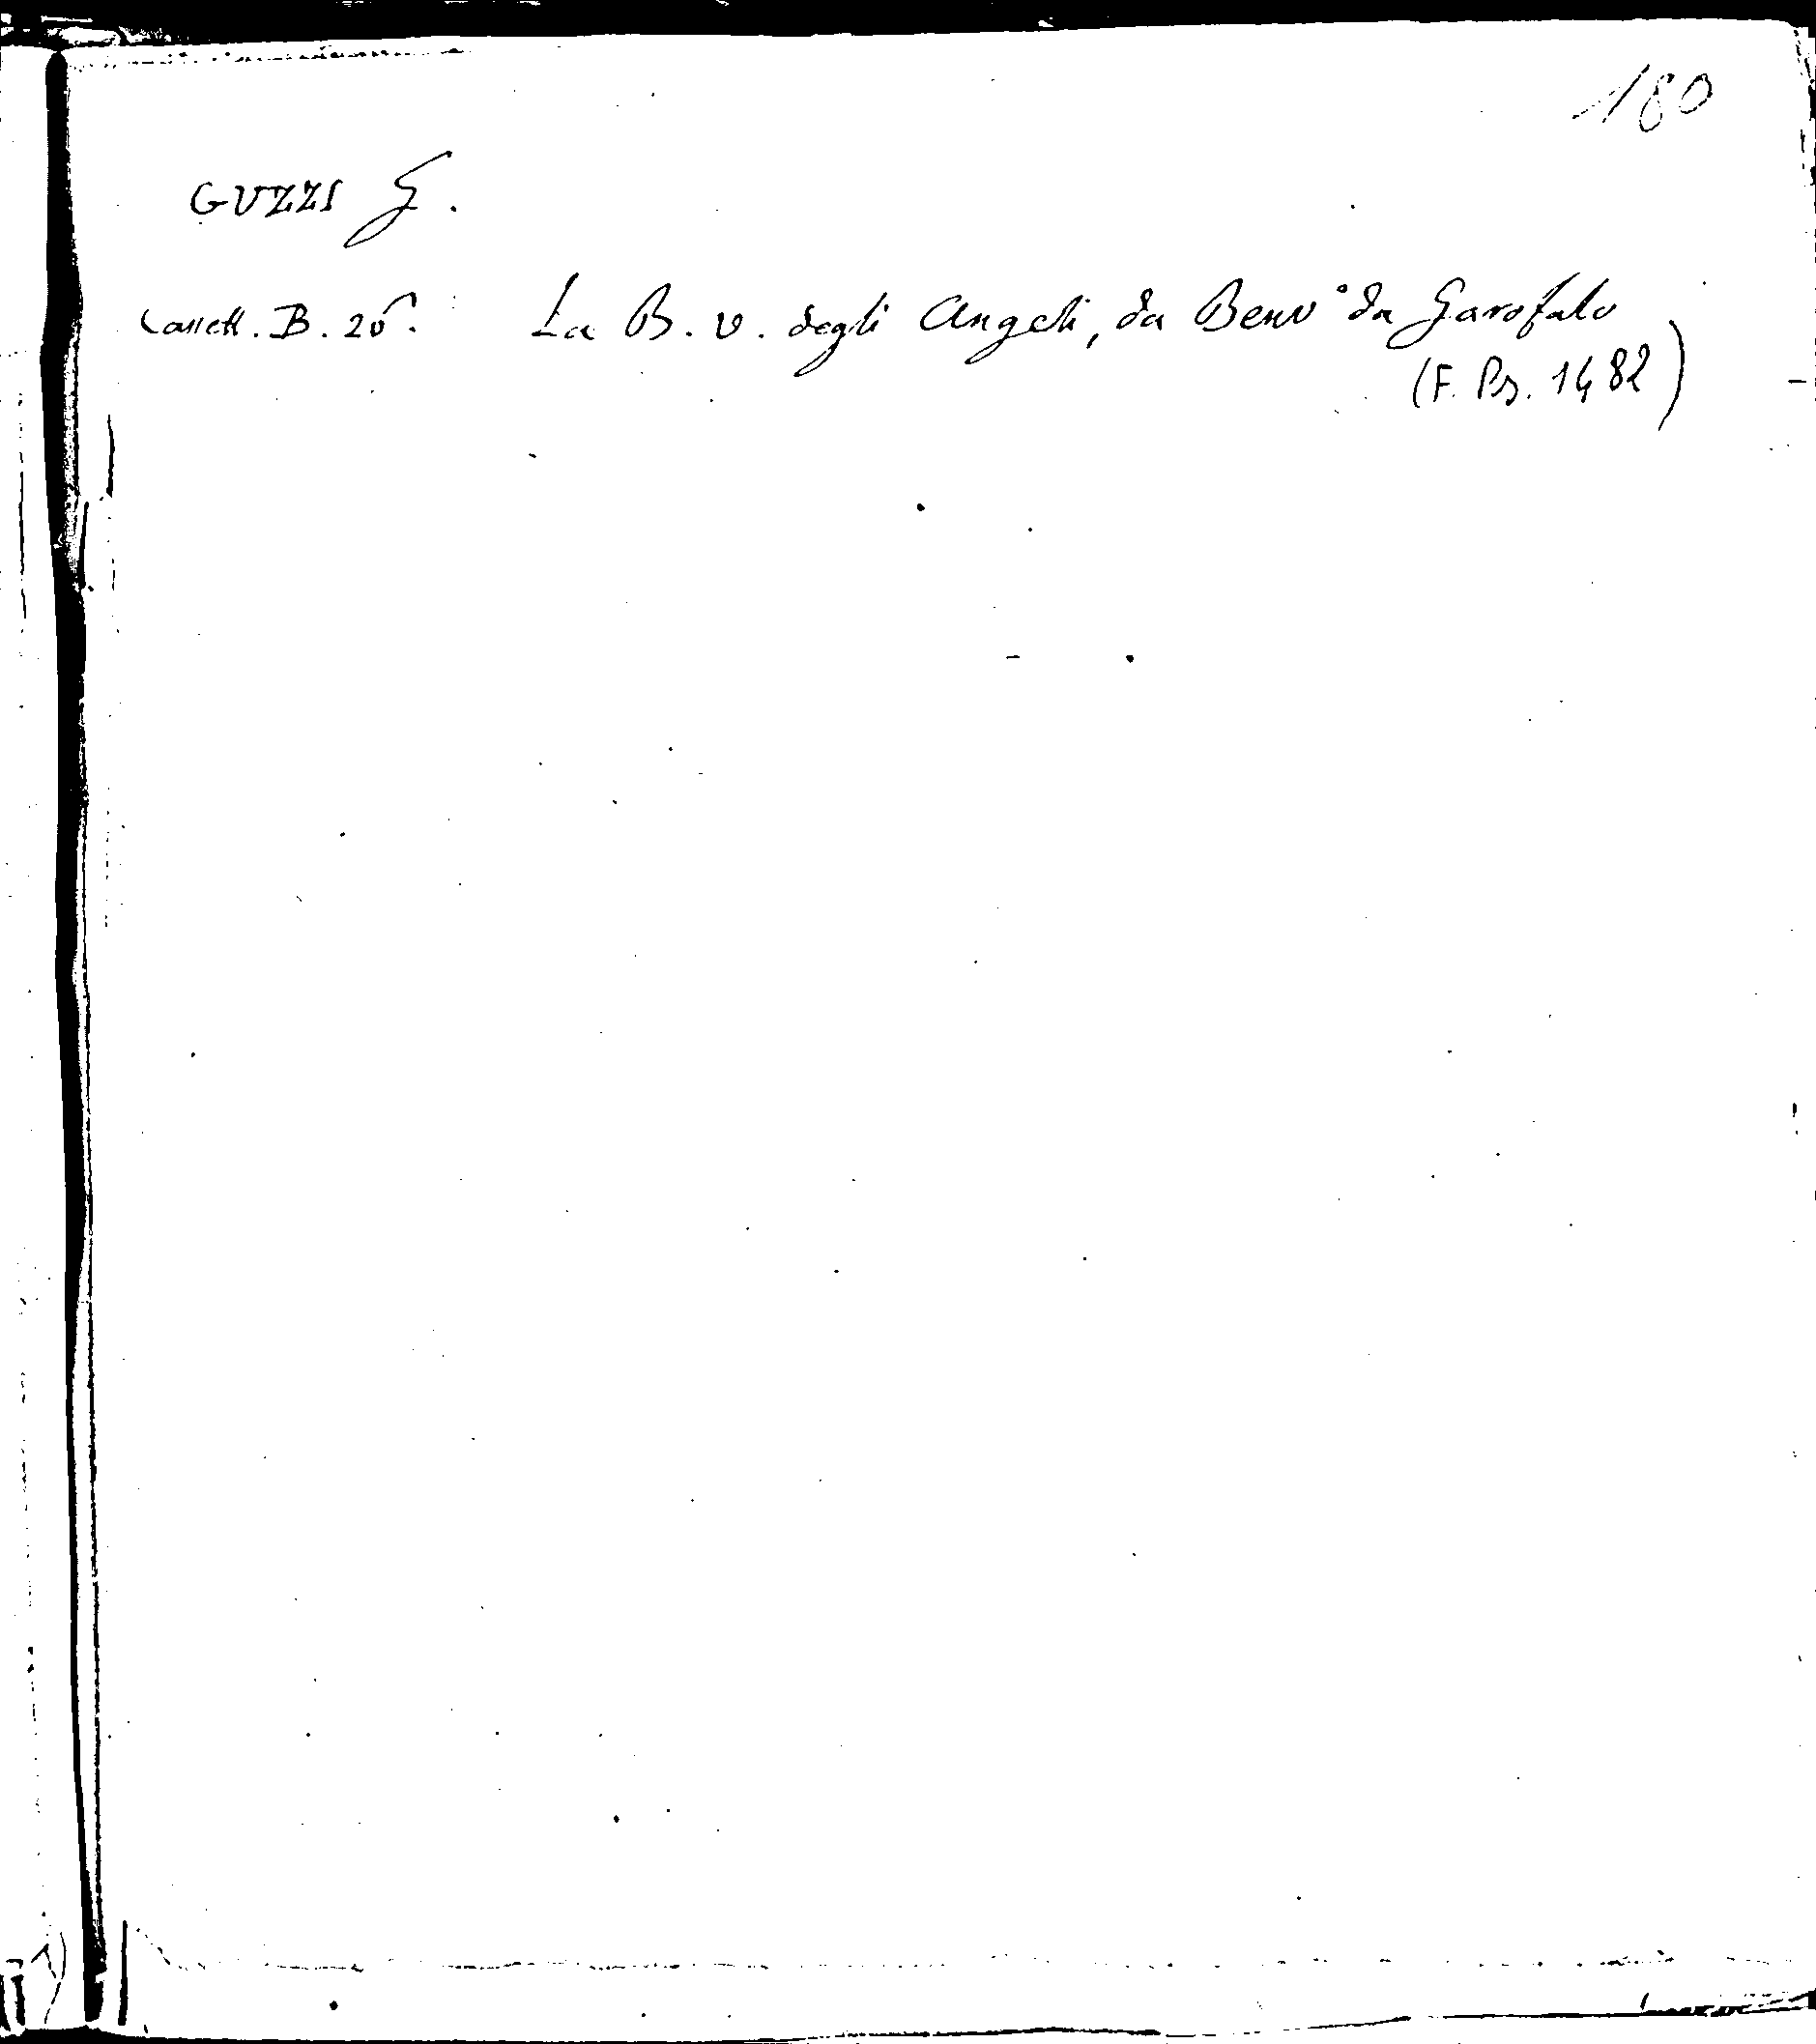 180
GUZZI G.
Cassett. B. 26. La B. V. degli Angeli, da Benv° da Garofalo
(F. Pg. 1482)